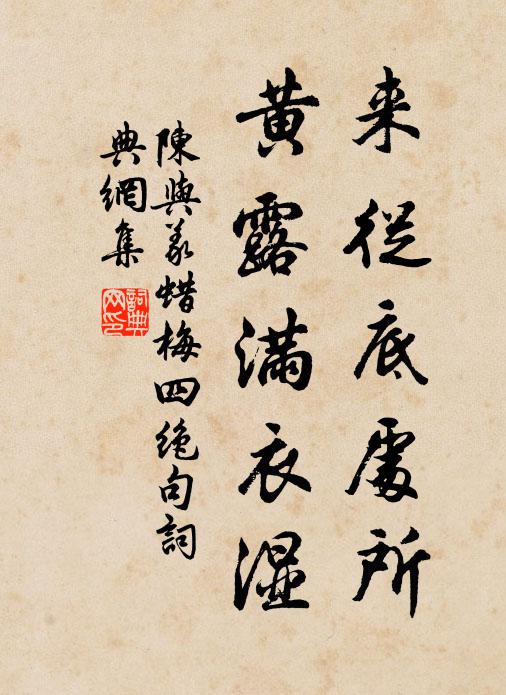 来從底處所
黄露滿衣濕
陳與義蜡梅四绝句詞
典網集
詞典
网印